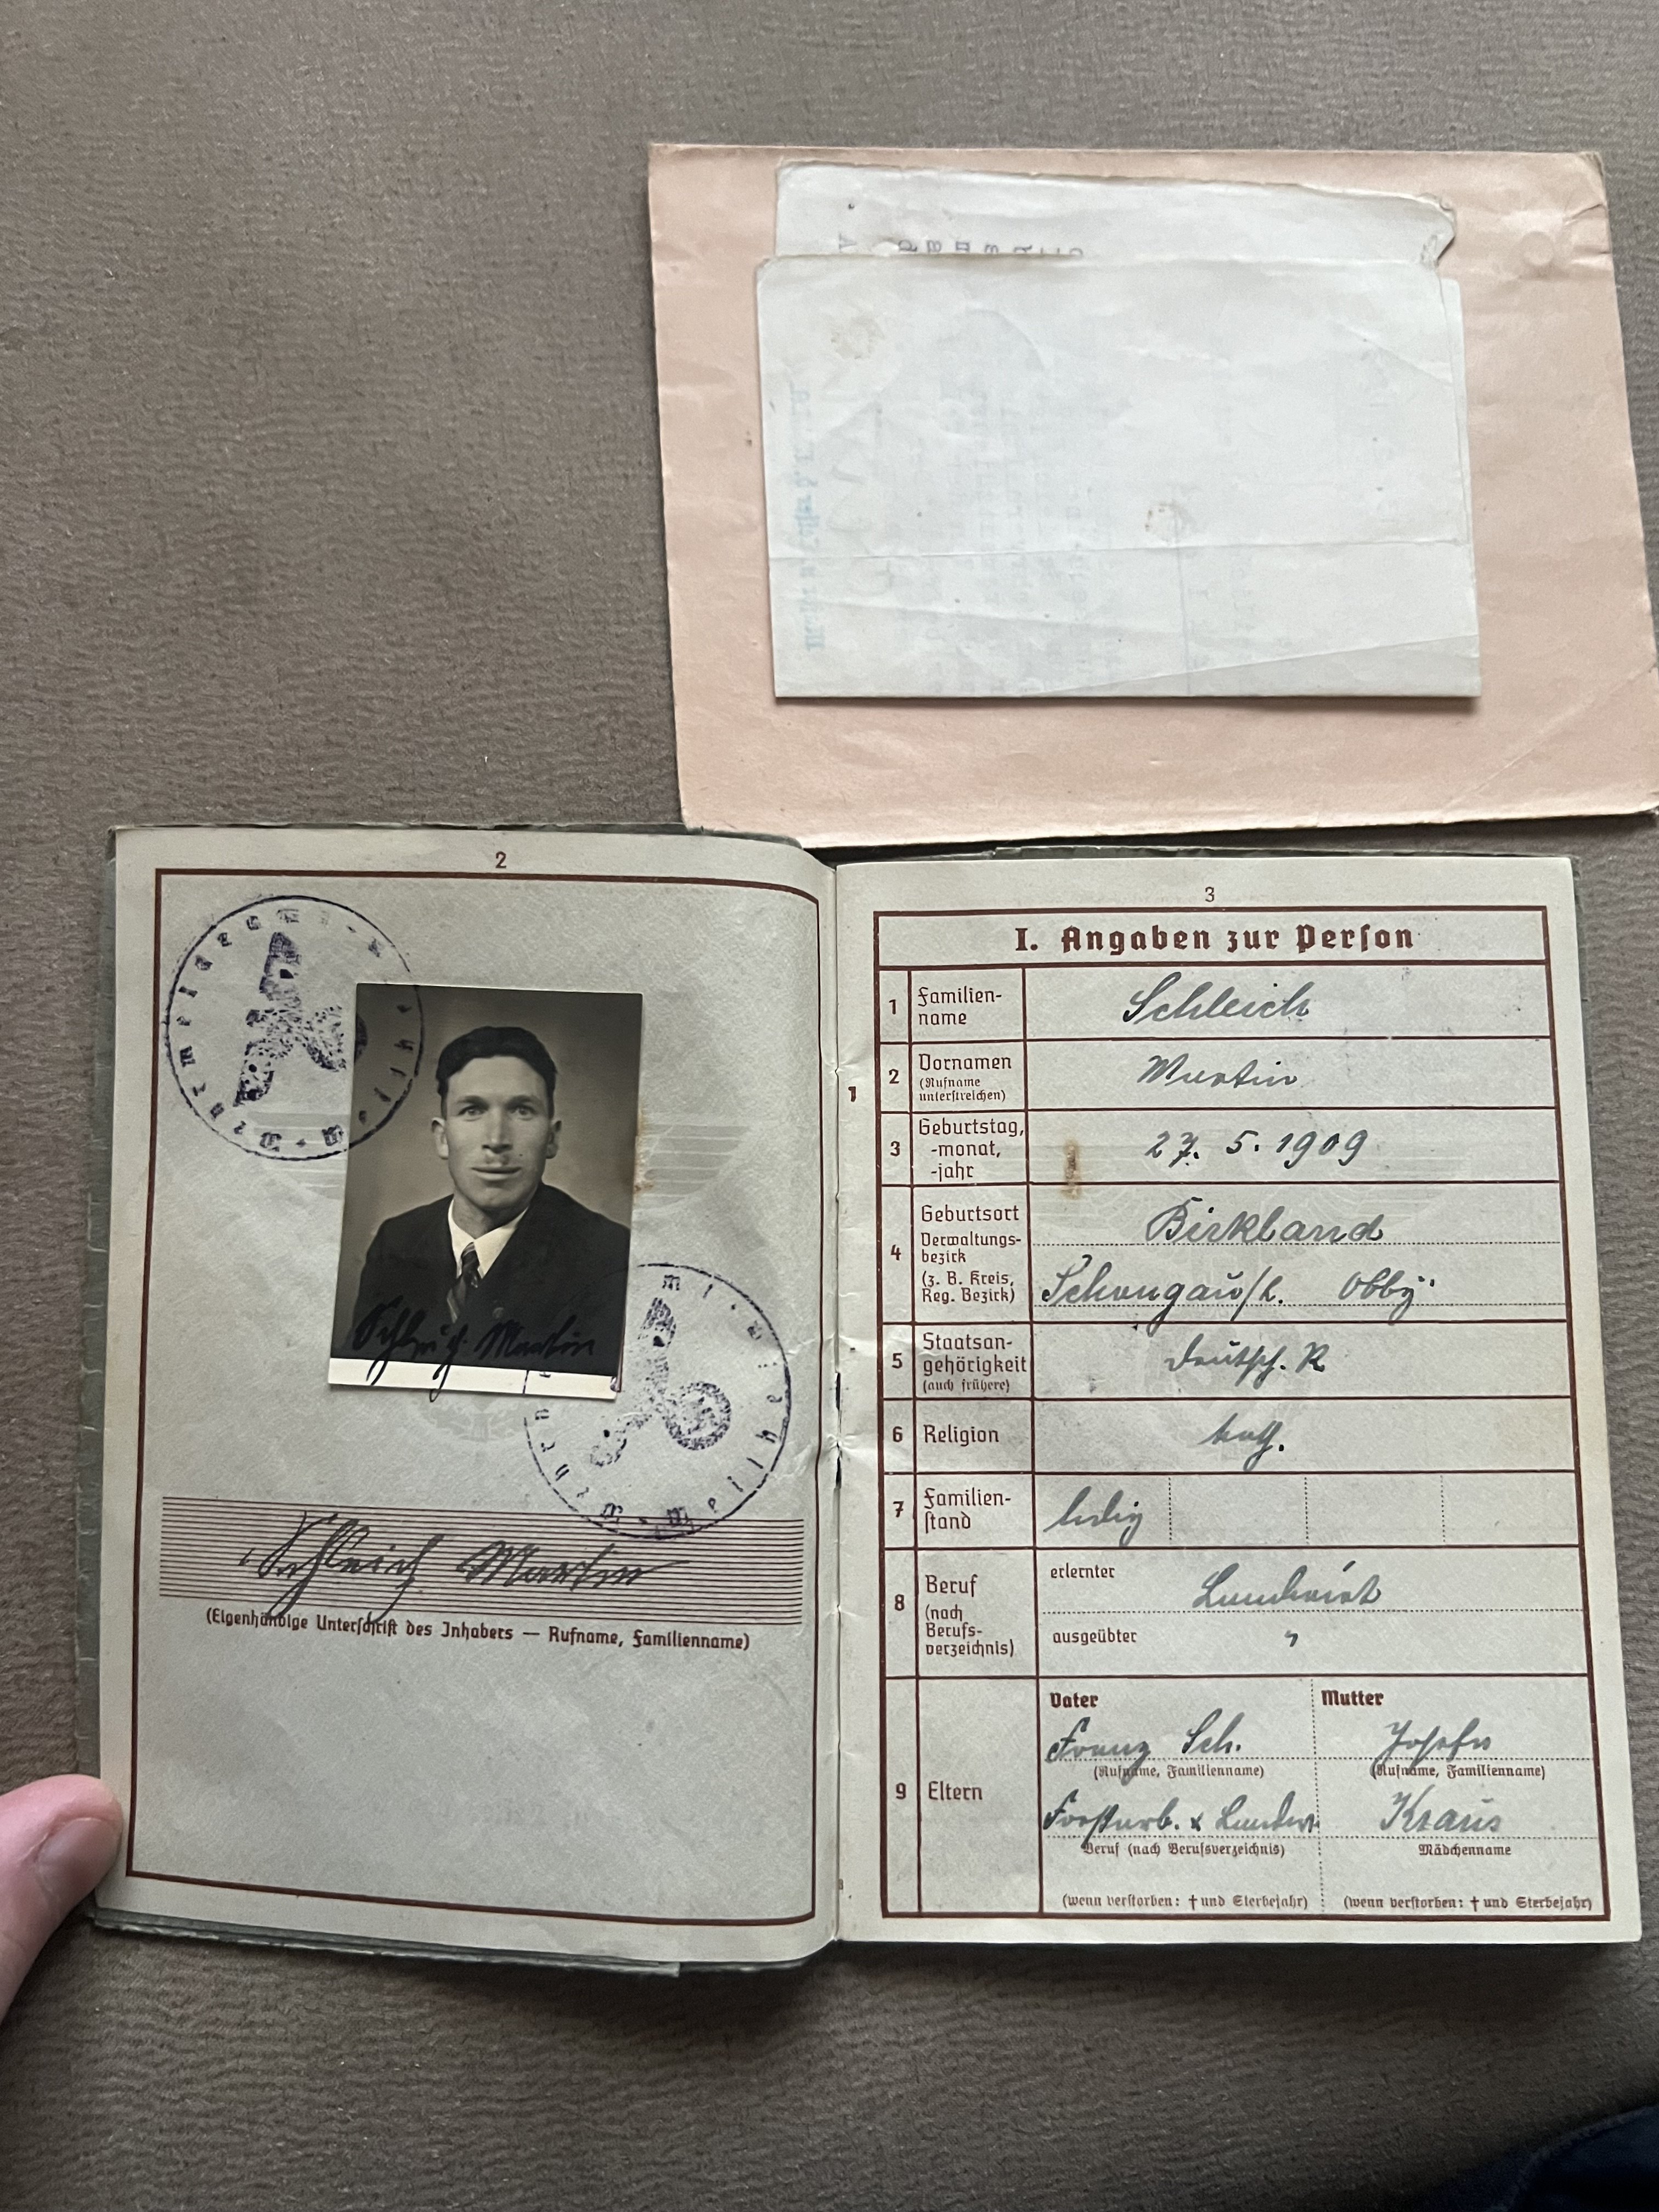 2
Schleich Martin
Schleich Martin
(Eigenhändige Unterschrift des Inhabers — Rufname, Familienname)
3
I. Angaben zur Person
1
1 Familien-
name
Schleich
2 Vornamen
(Rufname
unterstreichen)
Martin
3 Geburtstag,
-monat,
-jahr
27. 5. 1909
4 Geburtsort
Verwaltungs-
bezirk
(z. B. Kreis,
Reg. Bezirk)
Birkland
Schongau/L. Obby.
5 Staatsan-
gehörigkeit
(auch frühere)
Deutsch. R
6 Religion
kath.
7 Familien-
stand
ledig
8 Beruf
(nach
Berufs-
verzeichnis)
erlernter
Landwirt
ausgeübter
"
9 Eltern
Vater
Franz Sch.
(Rufname, Familienname)
Forstarb. & Landw.
Beruf (nach Berufsverzeichnis)
(wenn verstorben: † und Sterbejahr)
Mutter
Josefa
(Rufname, Familienname)
Kraus
Mädchenname
(wenn verstorben: † und Sterbejahr)